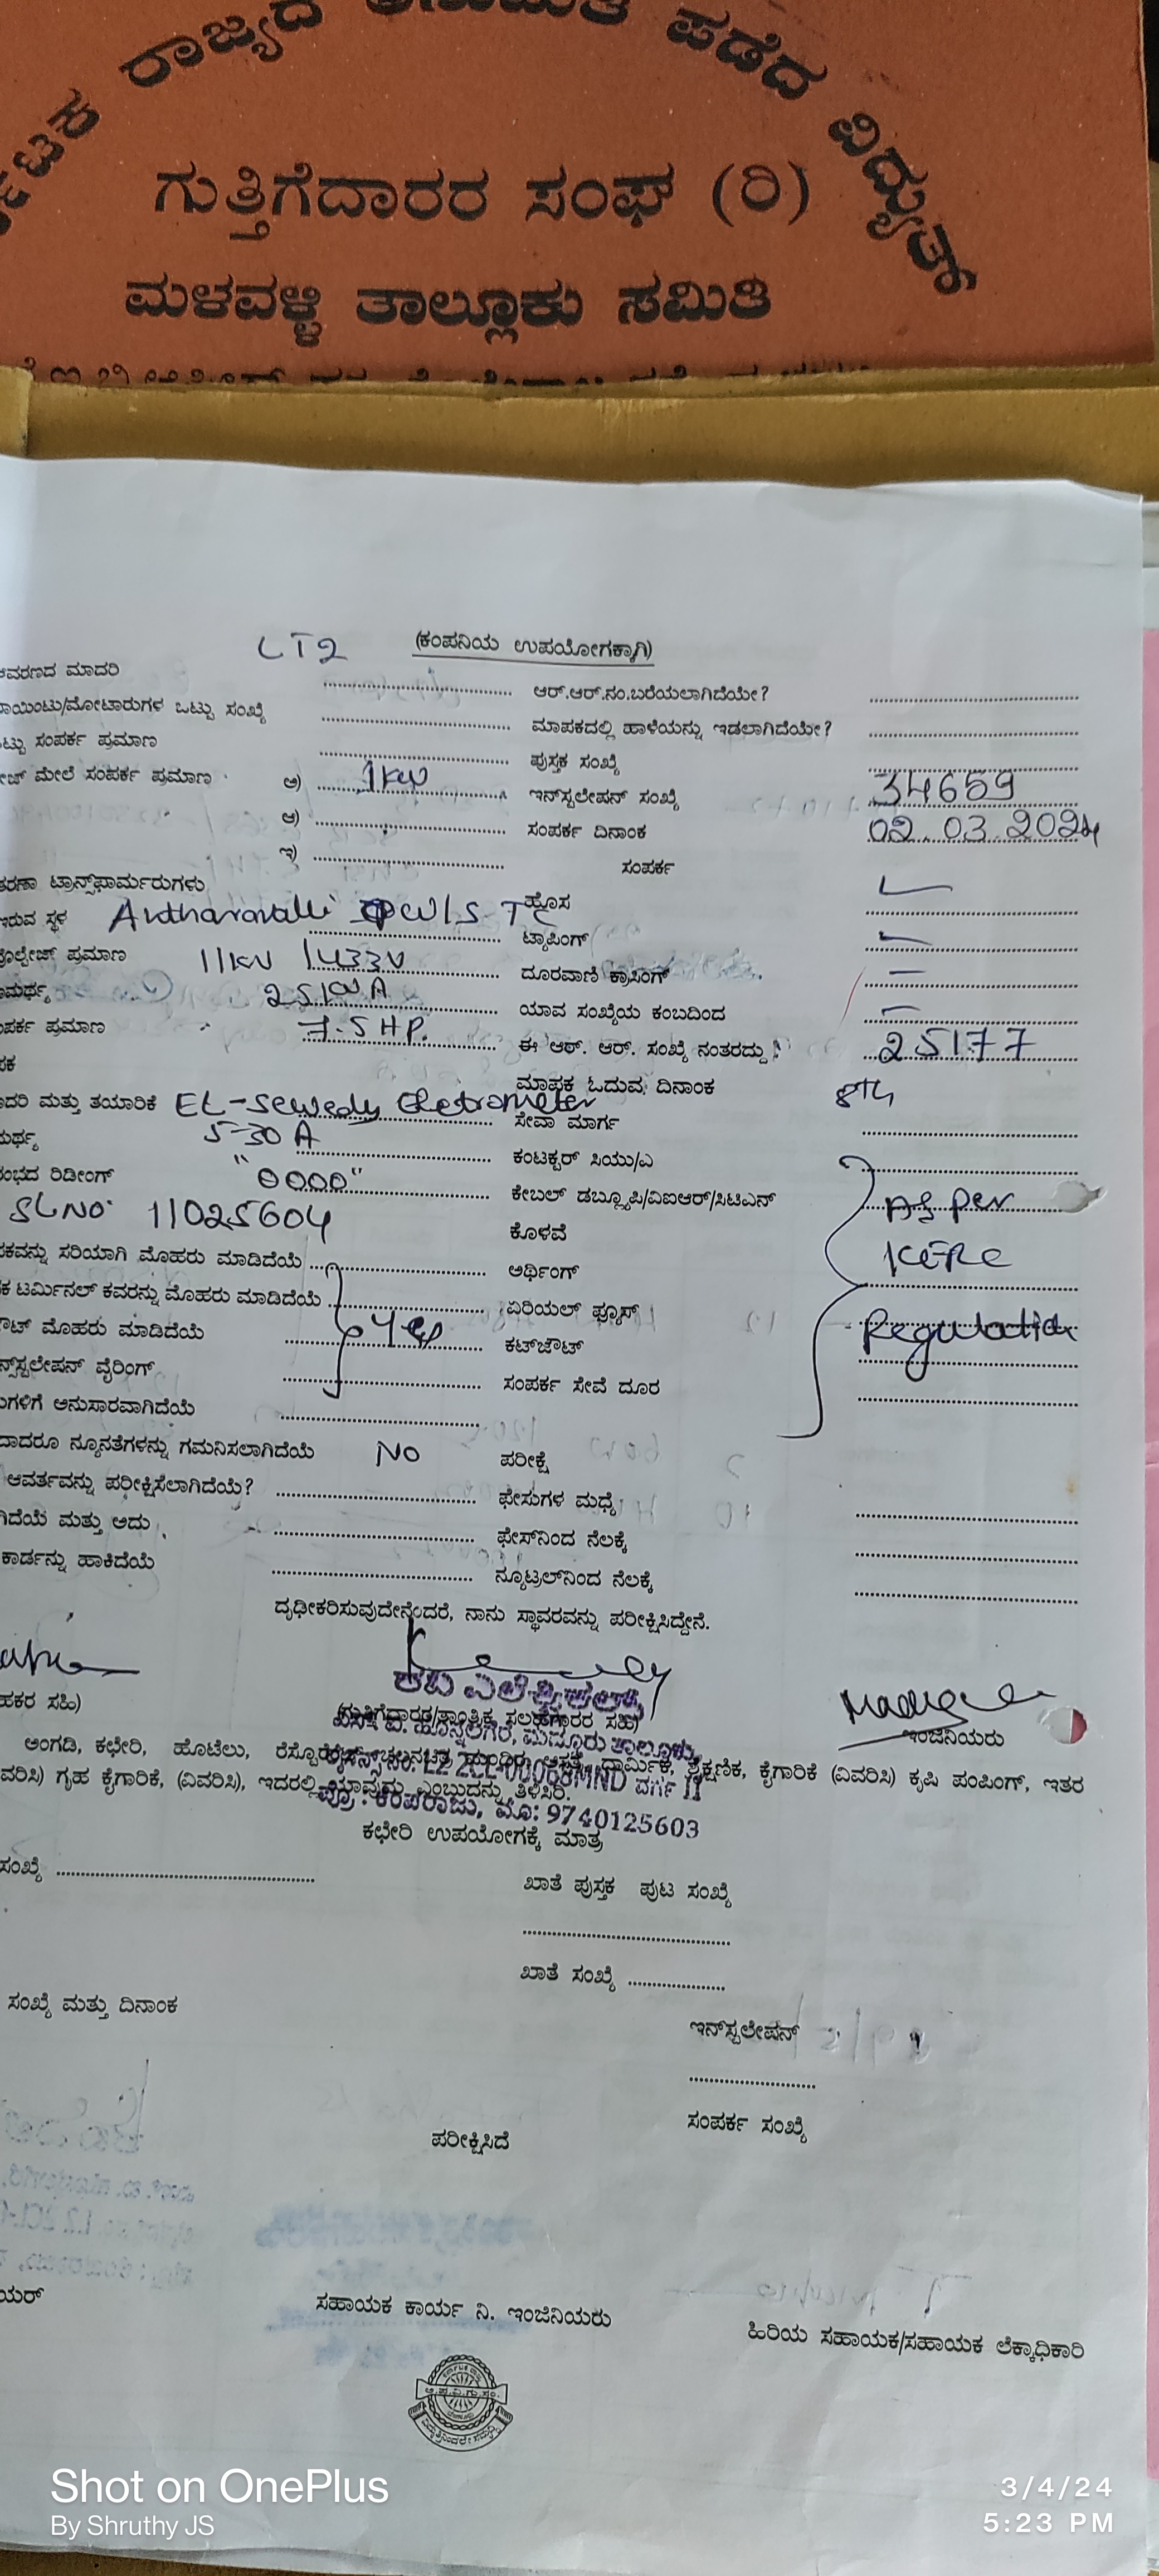 ರಾಜ್ಯದ ಅನುಮತಿ ಪಡೆದ ವಿದ್ಯುತ್
ಗುತ್ತಿಗೆದಾರರ ಸಂಘ (ರಿ)
ಮಳವಳ್ಳಿ ತಾಲ್ಲೂಕು ಸಮಿತಿ
LT2 (ಕಂಪನಿಯ ಉಪಯೋಗಕ್ಕಾಗಿ)
ಆವರಣದ ಮಾದರಿ ಆರ್.ಆರ್.ನಂ.ಬರೆಯಲಾಗಿದೆಯೇ?
ಪಾಯಿಂಟು/ಮೋಟಾರುಗಳ ಒಟ್ಟು ಸಂಖ್ಯೆ ಮಾಪಕದಲ್ಲಿ ಹಾಳೆಯನ್ನು ಇಡಲಾಗಿದೆಯೇ?
ಟ್ಟು ಸಂಪರ್ಕ ಪ್ರಮಾಣ ಪುಸ್ತಕ ಸಂಖ್ಯೆ
ೇಜ್ ಮೇಲೆ ಸಂಪರ್ಕ ಪ್ರಮಾಣ ಅ) 1kw ಇನ್‌ಸ್ಟಲೇಷನ್ ಸಂಖ್ಯೆ 34659
ಆ) ಸಂಪರ್ಕ ದಿನಾಂಕ 02.03.2024
ಇ) ಸಂಪರ್ಕ
ತರಣಾ ಟ್ರಾನ್ಸ್‌ಫಾರ್ಮರುಗಳು ಹೊಸ
ಇರುವ ಸ್ಥಳ W/S TC ಟ್ಯಾಪಿಂಗ್
ವೋಲ್ಟೇಜ್ ಪ್ರಮಾಣ 11kV /433V ದೂರವಾಣಿ ಕ್ರಾಸಿಂಗ್
ಾಮರ್ಥ್ಯ ಯಾವ ಸಂಖ್ಯೆಯ ಕಂಬದಿಂದ
ಂಪರ್ಕ ಪ್ರಮಾಣ 7.5HP. ಈ ಆರ್. ಆರ್. ಸಂಖ್ಯೆ ನಂತರದ್ದು 25177
ಪಕ ಮಾಪಕ ಓದುವ ದಿನಾಂಕ 8th
ಾದರಿ ಮತ್ತು ತಯಾರಿಕೆ EL-Sewedy Eletrometer ಸೇವಾ ಮಾರ್ಗ
ಮರ್ಥ್ಯ 5-30 A ಕಂಟಕ್ಟರ್ ಸಿಯು/ಎ
ರಂಭದ ರಿಡೀಂಗ್ "0000" ಕೇಬಲ್ ಡಬ್ಲ್ಯೂಪಿ/ವಿಐಆರ್/ಸಿಟಿಎನ್ As per
SL NO. 11025604 ಕೊಳವೆ KERC
ಪಕವನ್ನು ಸರಿಯಾಗಿ ಮೊಹರು ಮಾಡಿದೆಯೆ ಅರ್ಥಿಂಗ್
ಕ ಟರ್ಮಿನಲ್ ಕವರನ್ನು ಮೊಹರು ಮಾಡಿದೆಯೆ ಏರಿಯಲ್ ಫ್ಯೂಸ್ Regulation
ೌಟ್ ಮೊಹರು ಮಾಡಿದೆಯೆ Yes ಕಟ್‌ಔಟ್
ನ್‌ಸ್ಟಲೇಷನ್ ವೈರಿಂಗ್ ಸಂಪರ್ಕ ಸೇವೆ ದೂರ
ುಗಳಿಗೆ ಅನುಸಾರವಾಗಿದೆಯೆ
ದಾದರೂ ನ್ಯೂನತೆಗಳನ್ನು ಗಮನಿಸಲಾಗಿದೆಯೆ NO ಪರೀಕ್ಷೆ
ಆವರ್ತವನ್ನು ಪರೀಕ್ಷಿಸಲಾಗಿದೆಯೆ? ಫೇಸುಗಳ ಮಧ್ಯೆ
ಗಿದೆಯೆ ಮತ್ತು ಅದು ಫೇಸ್‌ನಿಂದ ನೆಲಕ್ಕೆ
ಕಾರ್ಡನ್ನು ಹಾಕಿದೆಯೆ ನ್ಯೂಟ್ರಲ್‌ನಿಂದ ನೆಲಕ್ಕೆ
ದೃಢೀಕರಿಸುವುದೇನೆಂದರೆ, ನಾನು ಸ್ಥಾವರವನ್ನು ಪರೀಕ್ಷಿಸಿದ್ದೇನೆ.
ಹಕರ ಸಹಿ) (ಗುತ್ತಿಗೆದಾರರ/ತಾಂತ್ರಿಕ ಸಲಹೆಗಾರರ ಸಹಿ) ಇಂಜಿನಿಯರು
ಅಂಗಡಿ, ಕಛೇರಿ, ಹೊಟೆಲು, ಧಾರ್ಮಿಕ, ಶೈಕ್ಷಣಿಕ, ಕೈಗಾರಿಕೆ (ವಿವರಿಸಿ) ಕೃಷಿ ಪಂಪಿಂಗ್, ಇತರ
ವರಿಸಿ) ಗೃಹ ಕೈಗಾರಿಕೆ, (ವಿವರಿಸಿ), ಇದರಲ್ಲಿ ಯಾವುದು ಎಂಬುದನ್ನು ತಿಳಿಸಿರಿ.
ಪ್ರೊ: ಕೆಂಪರಾಜು, ಮೊ: 9740125603
ಕಛೇರಿ ಉಪಯೋಗಕ್ಕೆ ಮಾತ್ರ
ಸಂಖ್ಯೆ ಖಾತೆ ಪುಸ್ತಕ ಪುಟ ಸಂಖ್ಯೆ
ಖಾತೆ ಸಂಖ್ಯೆ
ಸಂಖ್ಯೆ ಮತ್ತು ದಿನಾಂಕ ಇನ್‌ಸ್ಟಲೇಷನ್
ಸಂಪರ್ಕ ಸಂಖ್ಯೆ
ಪರೀಕ್ಷಿಸಿದೆ
ಯರ್ ಸಹಾಯಕ ಕಾರ್ಯ ನಿ. ಇಂಜಿನಿಯರು ಹಿರಿಯ ಸಹಾಯಕ/ಸಹಾಯಕ ಲೆಕ್ಕಾಧಿಕಾರಿ
Shot on OnePlus
By Shruthy JS
3/4/24
5:23 PM